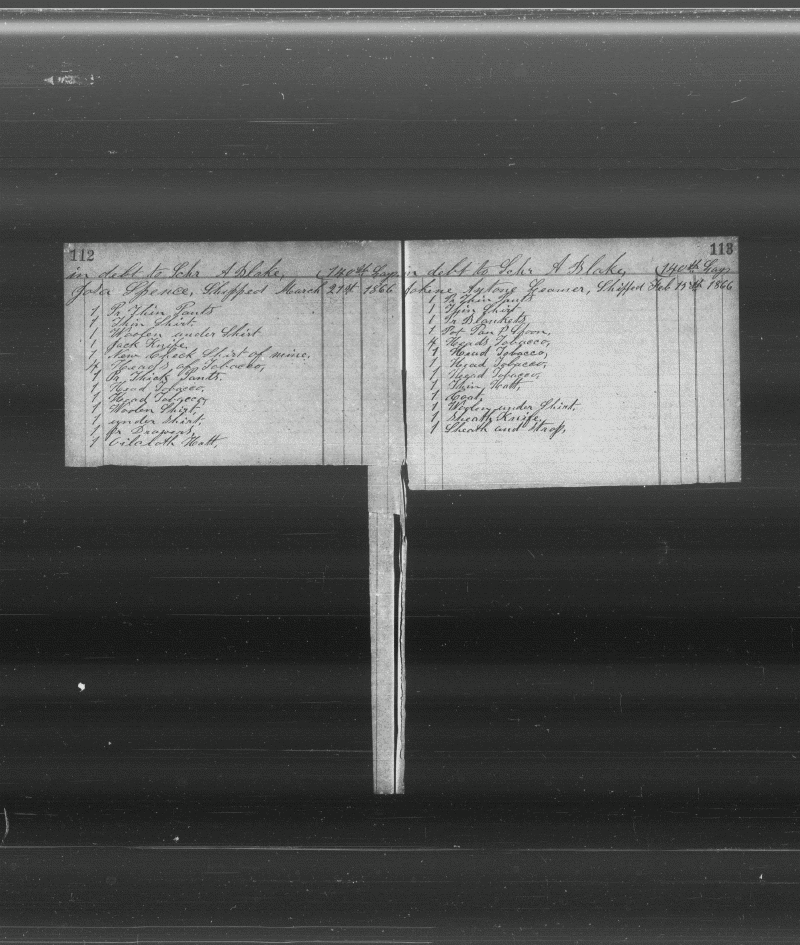 112
in debt to Schr A Blake, (140th Lay,
Spence, Shipped March 21st 1866
1 Pr Thin Pants
1 Thin Shirt.
1 Woolen under Shirt
1 Jack Knife.
1 New Check Shirt of mine.
4 Heads of Tobacco,
1 Pr Thick Pants.
1 Head Tobacco,
1 Head Tobacco,
1 Woolen Shirt.
1 under Shirt.
1 pr Drawers.
1 Oilcloth Hatt.
113
in debt to Schr A Blake, (140th Lay,
Seamer, Shipped Feb 15th 1866
1 Pr Thin Pants
1 Thin Shirt.
1 Pr Blankets
1 Pot Pan & Spoon,
4 Heads Tobacco,
1 Head Tobacco,
1 Head Tobacco,
1 Head Tobacco,
1 Skin Hatt
1 Coat,
1 Woolen under Shirt.
1 Sheath Knife,
1 Sheath and Strap,